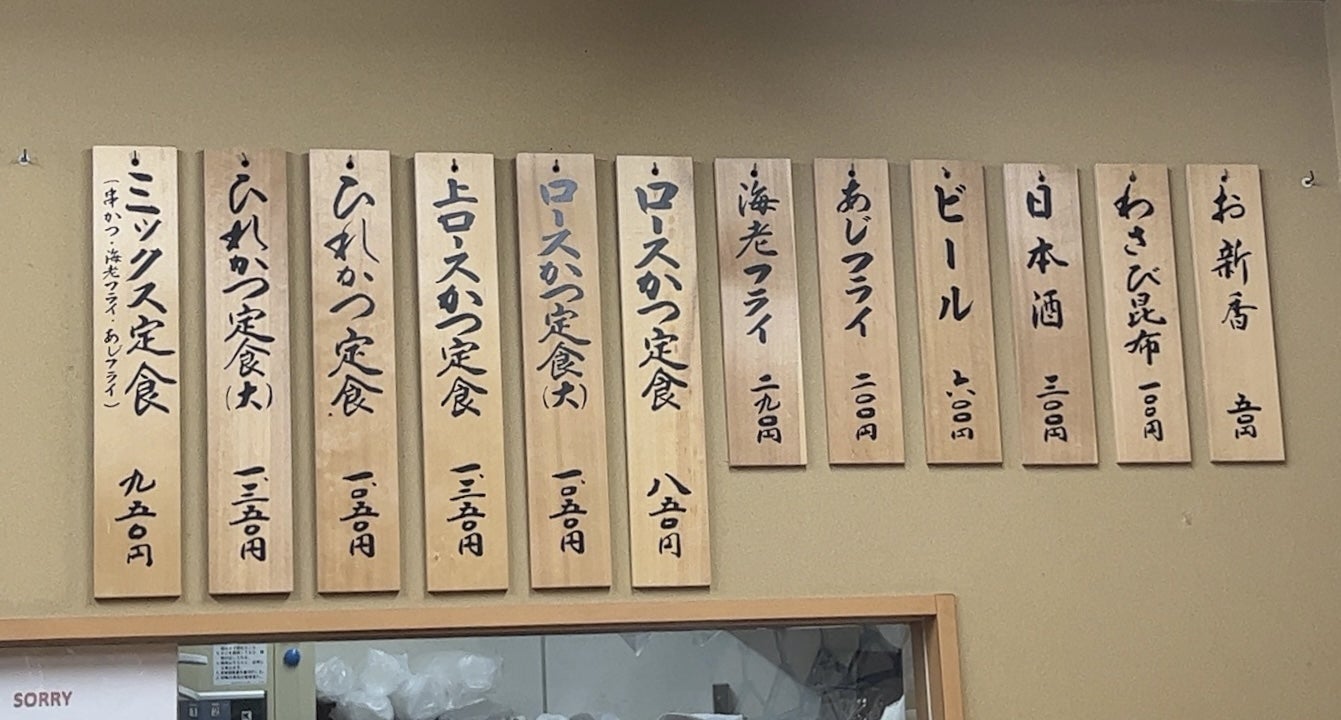 お新香 五〇円
わさび昆布 一〇〇円
日本酒 三〇〇円
ビール 六〇〇円
あじフライ 二〇〇円
海老フライ 二九〇円
ロースかつ定食 八五〇円
ロースかつ定食(大) 一、〇五〇円
上ロースかつ定食 一、三五〇円
ひれかつ定食 一、〇五〇円
ひれかつ定食(大) 一、三五〇円
ミックス定食 九五〇円
(串かつ・海老フライ・あじフライ)
SORRY